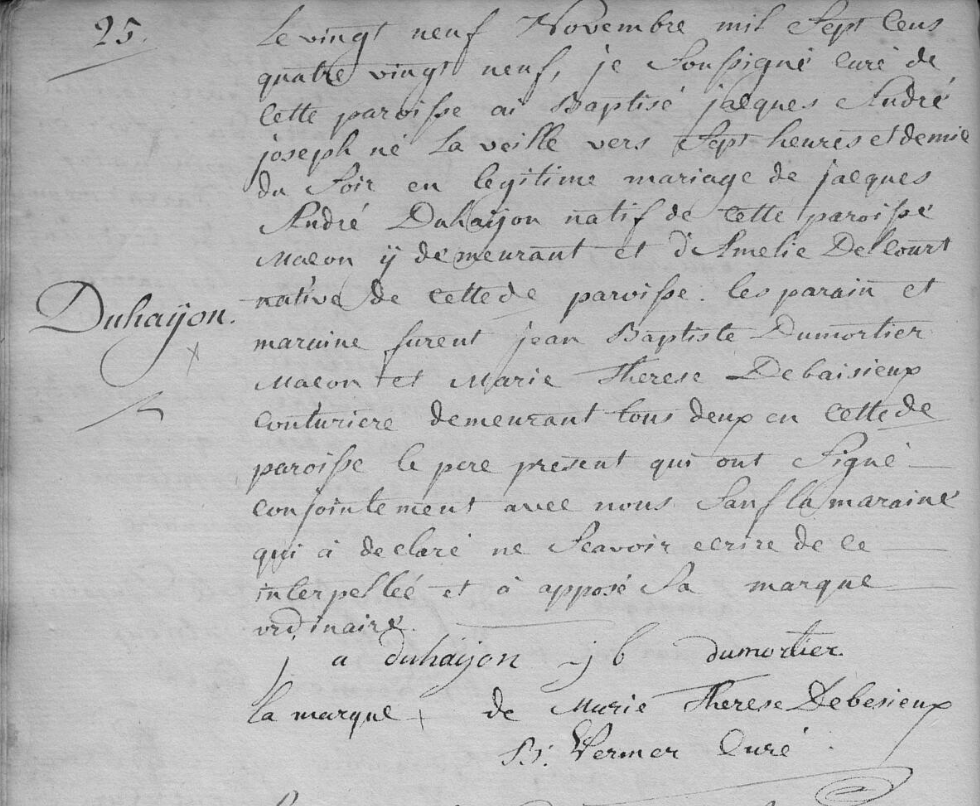 25.
Le vingt neuf Novembre mil Sept Cens
quatre vingt neuf, je Soussigné curé de
Cette paroisse ai Baptisé jacques André
joseph né La veille vers Sept heures et demie
du Soir en legitime mariage de jacques
André Duhaÿon natif de cette paroisse
Macon ÿ demeurant et d'Amelie Delcourt
native de cettede paroisse. les parain et
Duhaÿon.
maraine furent jean Baptiste Dumortier
Macon et Marie Therese Debaisieux
Couturiere demeurant tous deux en cettede
paroisse le pere present qui ont Signé
Conjointement avec nous Sauf la maraine
qui à declaré ne Scavoir ecrire de ce
interpellée et à apposé Sa marque
ordinaire.
j a duhaÿon j b dumortier
la marque + de Marie Therese Debesieux
Vermer Curé